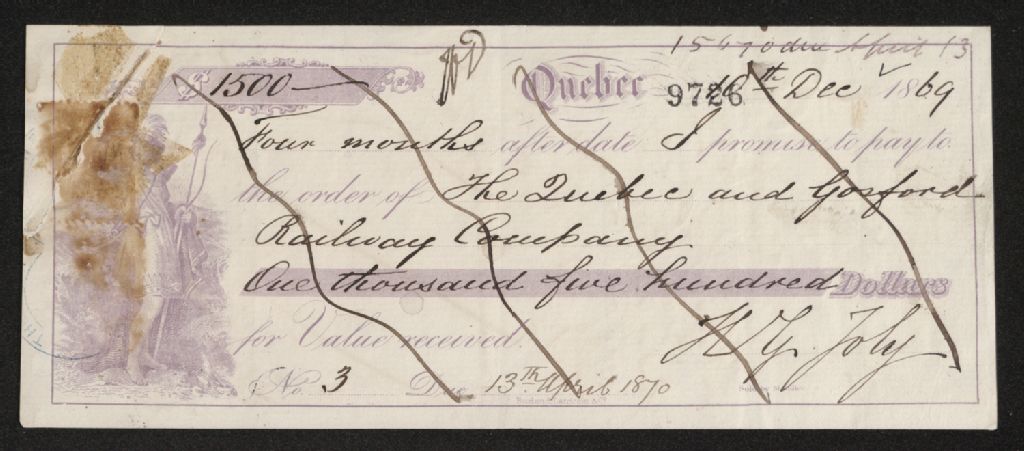 15470 due April 13
$ 1500 — Quebec 9726 10th Dec 1869
Four months after date I promise to pay to
the order of The Quebec and Gosford
Railway Company
One thousand five hundred Dollars
for Value received.
H G Joly
No. 3 Due 13th April 1870